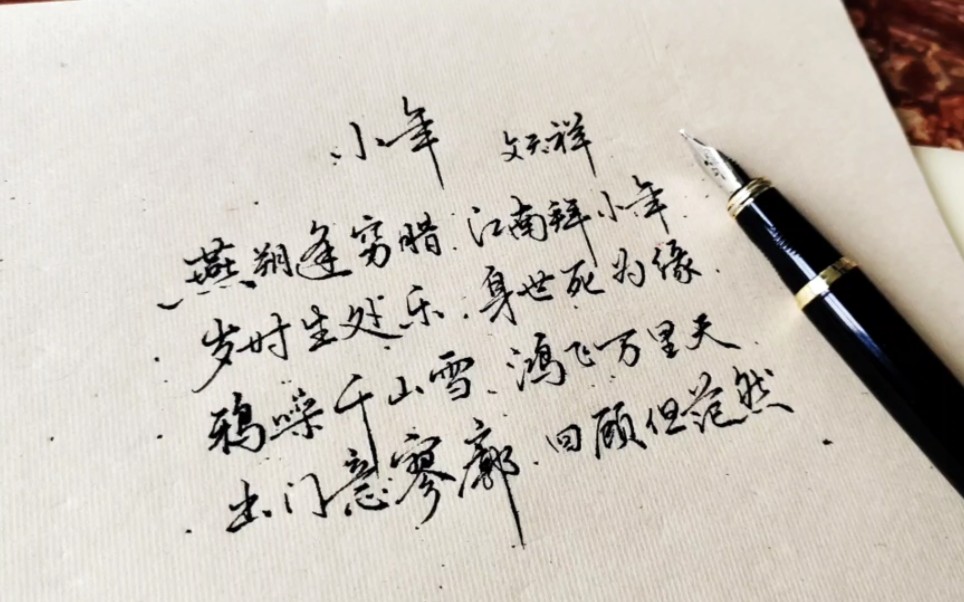 小年 文天祥
燕朔逢穷腊.江南拜小年
岁时生处乐.身世死为缘.
鸦噪千山雪.鸿飞万里天
出门意寥廓.回顾但茫然